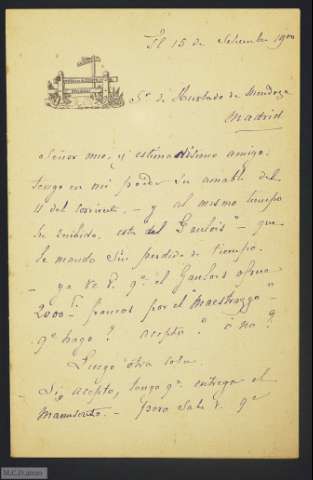 15 de Setiembre 1900
Sr. de Hurtado de Mendoza
Madrid
Señor mio, y estimadisimo amigo:
tengo en mi poder su amable del
11 del corriente, - y al mismo tiempo
he recibido este del "Gaulois" - que
le mando sin perdida de tiempo.
- ya ve V. qe. el Gaulois ofrece
2000 francos por el "Maestrazgo" -
qe hago? acepto? ó no?
Luego otra cosa.
Si acepto, tengo qe. entregar el
manuscrito. - pero sabe V. qe